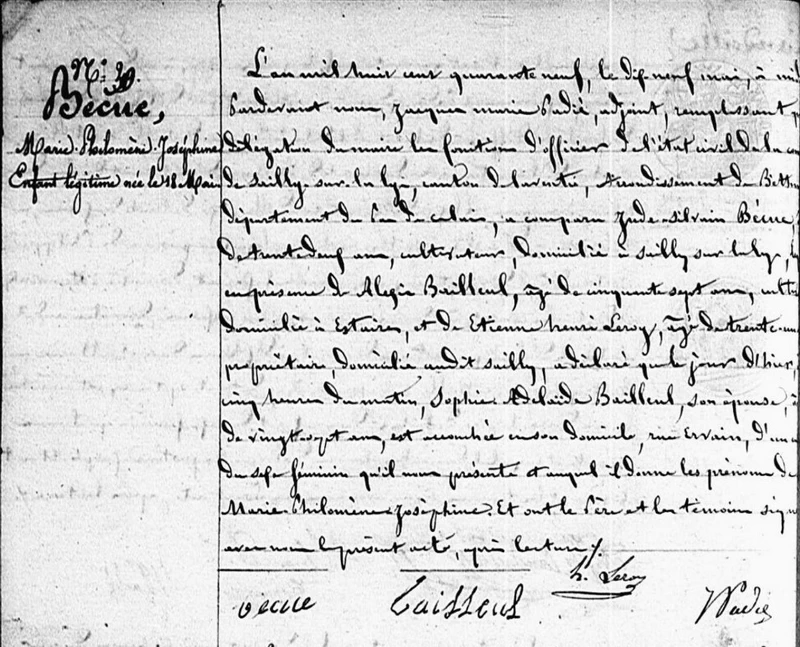 Bécue,
Marie Philomène Joséphine
Enfant légitime née le 18 Mai
L'an mil huit cent quarante neuf, le dix neuf mai, à mi
Pardevant nous, Jacques marie Padié, adjoint, remplissant p
délégation du maire les fonctions d'officier de l'état civil de la co
de sailly sur la lys, canton de laventie, arrondissement de Béthu
département du Pas de calais, a comparu Jude silvain Bécue,
de trente deux ans, cultivateur, domicilié à sailly sur la lys,
en présence de Alexis Bailleul, âgé de cinquante sept ans, culti
domicilié à Estaires, et de Etienne henri Leroy, âgé de trente
propriétaire, domicilié audit sailly, a déclaré que le jour d'hier,
cinq heures du matin, Sophie Adelaïde Bailleul, son épouse,
de vingt sept ans, est accouchée en son domicile, rue d'un
du sexe féminin qu'il nous présente et auquel il donne les prénoms de
Marie Philomène Joséphine. Et ont le Père et les témoins sign
avec nous le présent acte, après lecture.
h. Leroy
Bécue Bailleul Padié